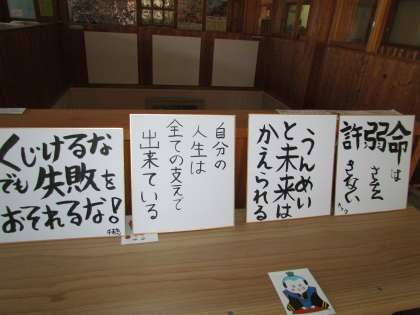 くじけるな
でも失敗を
おそれるな!
自分の
人生は
全ての支えで
出来ている
うんめい
と未来は
かえられる
命は
弱さを
許さない